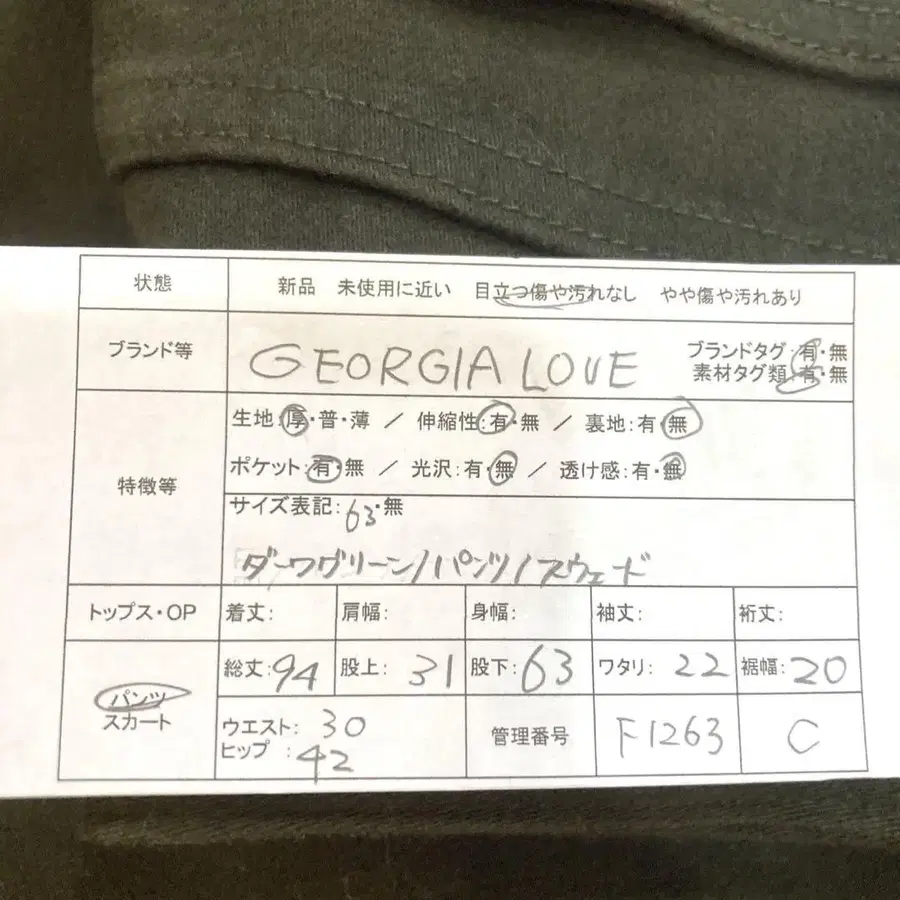 状態 新品 未使用に近い 目立つ傷や汚れなし やや傷や汚れあり
ブランド等 GEORGIA LOVE ブランドタグ:有・無
素材タグ類:有・無
特徴等 生地:厚・普・薄 / 伸縮性:有・無 / 裏地:有・無
ポケット:有・無 / 光沢:有・無 / 透け感:有・無
サイズ表記:63・無
ダークグリーン/パンツ/スウェード
トップス・OP 着丈: 肩幅: 身幅: 袖丈: 裄丈:
パンツ 総丈:94 股上:31 股下:63 ワタリ:22 裾幅:20
スカート ウエスト:30 管理番号 F1263 C
ヒップ:42